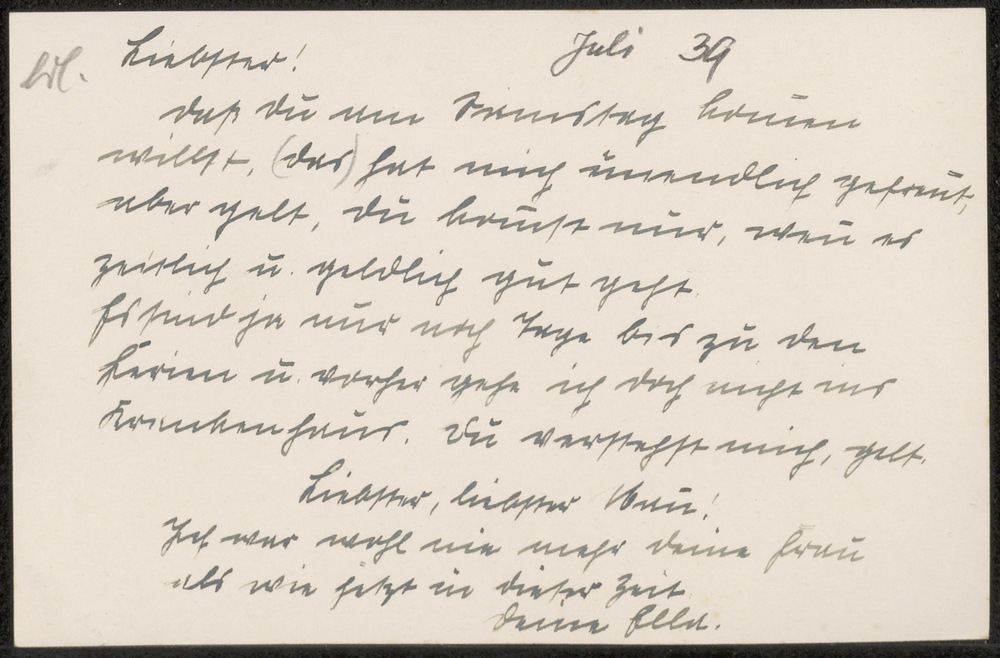 Liebster! Juli 39
daß du am Samstag kom̄en
willst, (das) hat mich unendlich gefreut,
aber gelt, du kom̄st nur, wen̄ es
zeitlich u. geldlich gut geht.
Es sind ja nur noch Tage bis zu den
Ferien u. vorher gehe ich doch nicht ins
Krankenhaus. Du verstehst mich, gelt.
Liebster, liebster Man̄!
Ich war wohl nie mehr deine Frau
als wie jetzt in dieser Zeit.
Deine Ella.